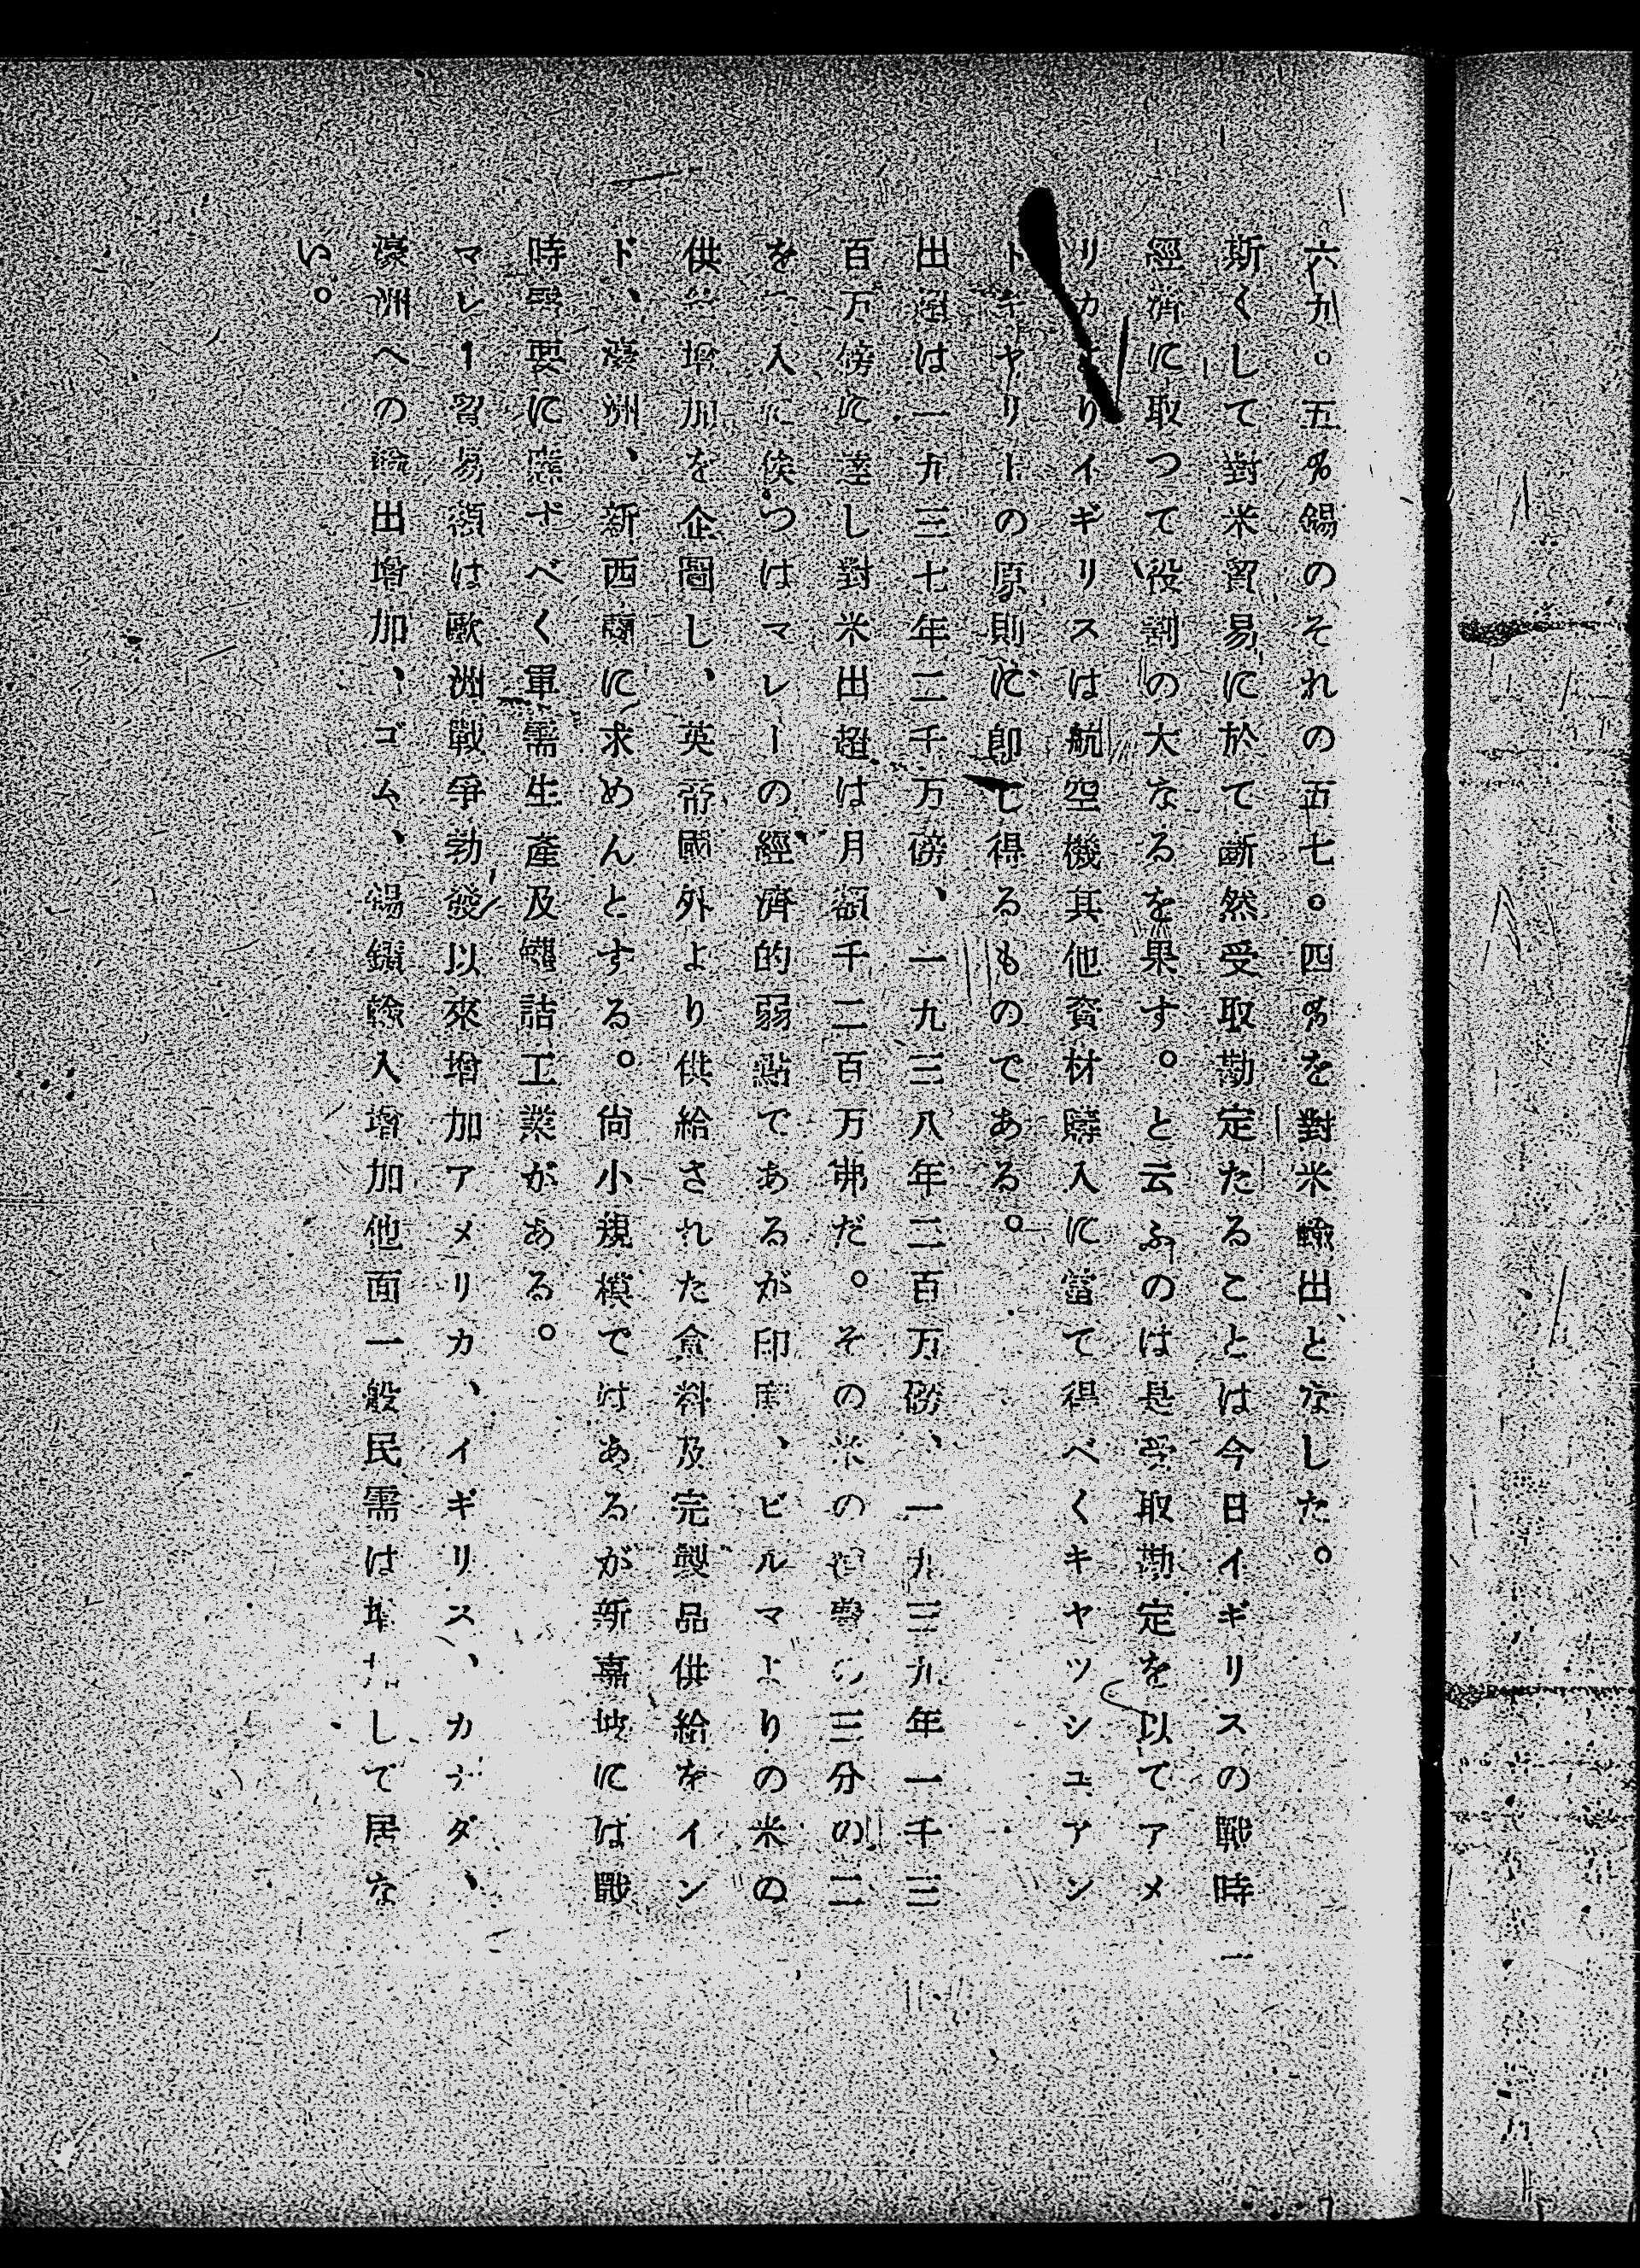 六九。五％錫のそれの五七。四％を對米輸出となした。
斯くして對米貿易に於て斷然受取勘定たることは今日イギリスの戰時
經濟に取つて役割の大なるを果す。と云ふのは是受取勘定を以てアメ
リカよりイギリスは航空機其他資材購入に當て得べくキヤツシユアン
トキヤリーの原則に卽し得るものである。
出超は一九三七年二千万磅、一九三八年二百万磅、一九三九年一千三
百万磅に達し對米出超は月額千二百万弗だ。その米の の三分の二
を 入に俟つはマレーの經濟的弱點であるが印度、ビルマよりの米の
供給增加を企圖し、英帝國外より供給された食料及完製品供給をイン
ド、濠洲、新西蘭に求めんとする。尙小規模ではあるが新嘉坡には戰
時需要に應ずべく軍需生產及罐詰工業がある。
マレー貿易額は歐洲戰爭勃發以來增加アメリカ、イギリス、カナダ、
濠洲への輸出增加、ゴム、錫鑛輸入增加他面一般民需は增加して居な
い。